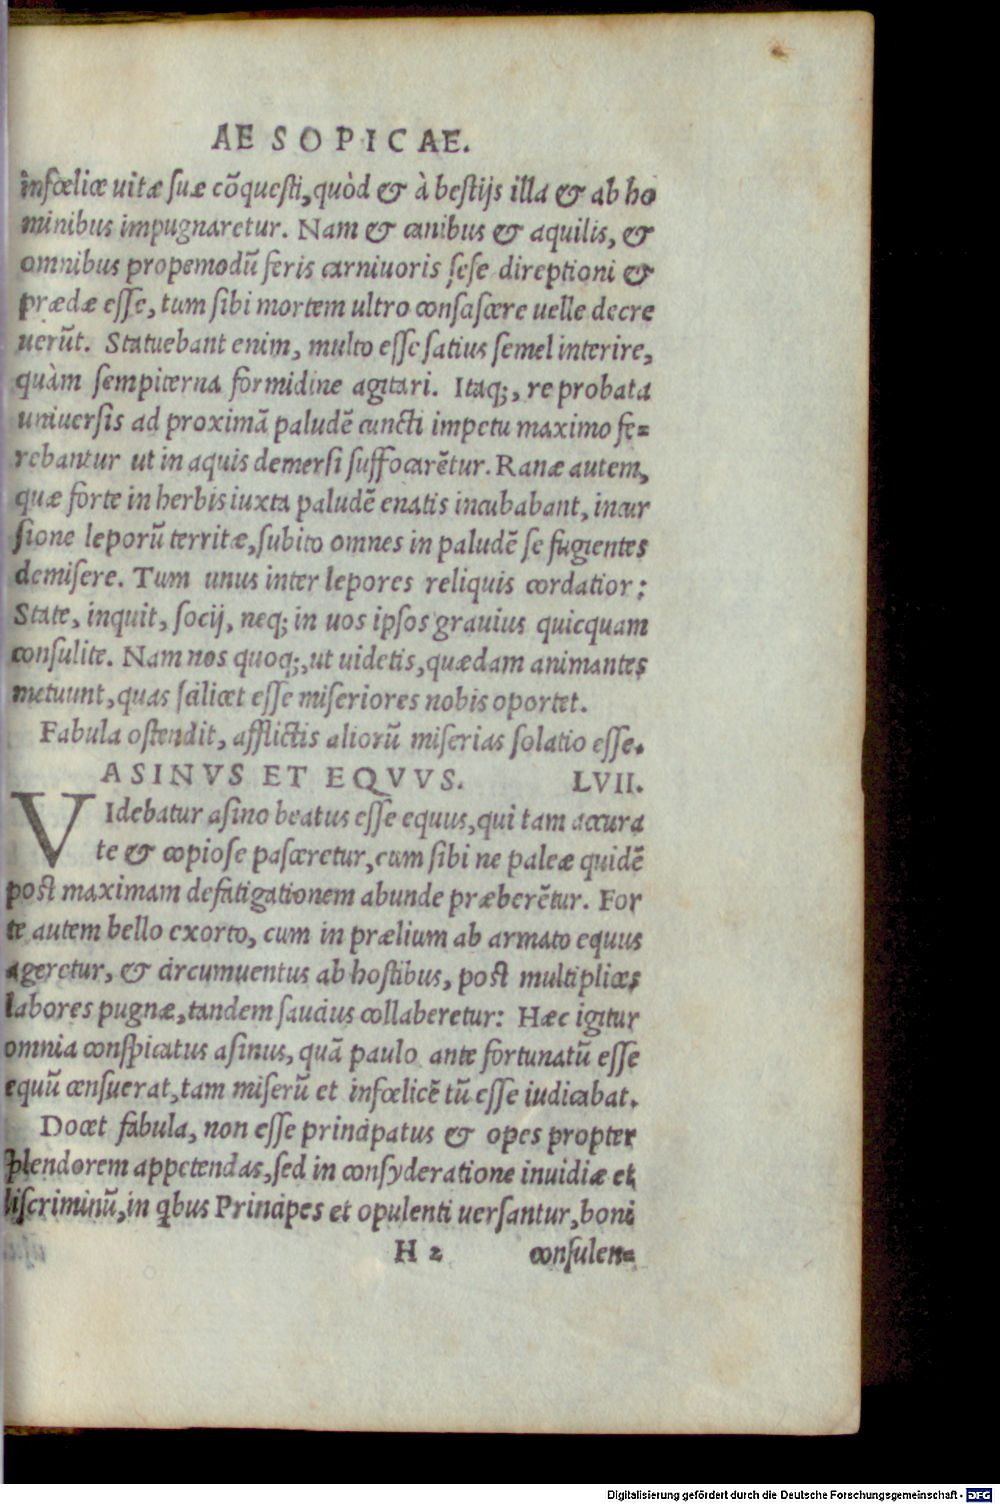 AESOPICAE.
infœlicæ uitæ suæ cõquesti, quòd & à bestijs illa & ab ho
minibus impugnaretur. Nam & canibus & aquilis, &
omnibus propemodũ feris carniuoris sese direptioni &
prædæ esse, tum sibi mortem ultro consciscere uelle decre
uerũt. Statuebant enim, multo esse satius semel interire,
quàm sempiterna formidine agitari. Itaq;, re probata
uniuersis ad proximã paludẽ cuncti impetu maximo fe=
rebantur ut in aquis demersi suffocarẽtur. Ranæ autem,
quæ forte in herbis iuxta paludẽ enatis incubabant, incur
sione leporũ territæ, subito omnes in paludẽ se fugientes
demisere. Tum unus inter lepores reliquis cordatior:
State, inquit, socij, neq; in uos ipsos grauius quicquam
consulite. Nam nos quoq;, ut uidetis, quædam animantes
metuunt, quas scilicet esse miseriores nobis oportet.
Fabula ostendit, afflictis aliorũ miserias solatio esse.
ASINVS ET EQVVS. LVII.
VIdebatur asino beatus esse equus, qui tam accura
te & copiose pasceretur, cum sibi ne paleæ quidẽ
post maximam defatigationem abunde præberẽtur. For
te autem bello exorto, cum in prælium ab armato equus
ageretur, & circumuentus ab hostibus, post multiplices
labores pugnæ, tandem saucius collaberetur: Hæc igitur
omnia conspicatus asinus, quã paulo ante fortunatũ esse
equũ censuerat, tam miserũ et infœlicẽ tũ esse iudicabat.
Docet fabula, non esse principatus & opes propter
splendorem appetendas, sed in consyderatione inuidiæ et
discriminũ, in qbus Principes et opulenti uersantur, boni
H 2 consulen=
Digitalisierung gefördert durch die Deutsche Forschungsgemeinschaft - DFG